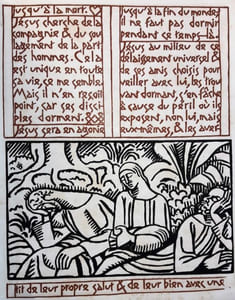 jusqu'à la mort.
Jésus cherche de la
compagnie & du sou
lagement de la part
des hommes. Cela
est unique en toute
la vie, ce me semble.
Mais il n'en reçoit
point, car ses disci
ples dorment.
Jésus sera en agonie
jusqu'à la fin du monde;
il ne faut pas dormir
pendant ce temps-là.
Jésus au milieu de ce
délaissement universel &
de ses amis choisis pour
veiller avec lui, les trou
vant dormans, s'en fâche
à cause du péril où ils
exposent, non lui, mais
eux-mêmes, & les aver
tit de leur propre salut & de leur bien avec une